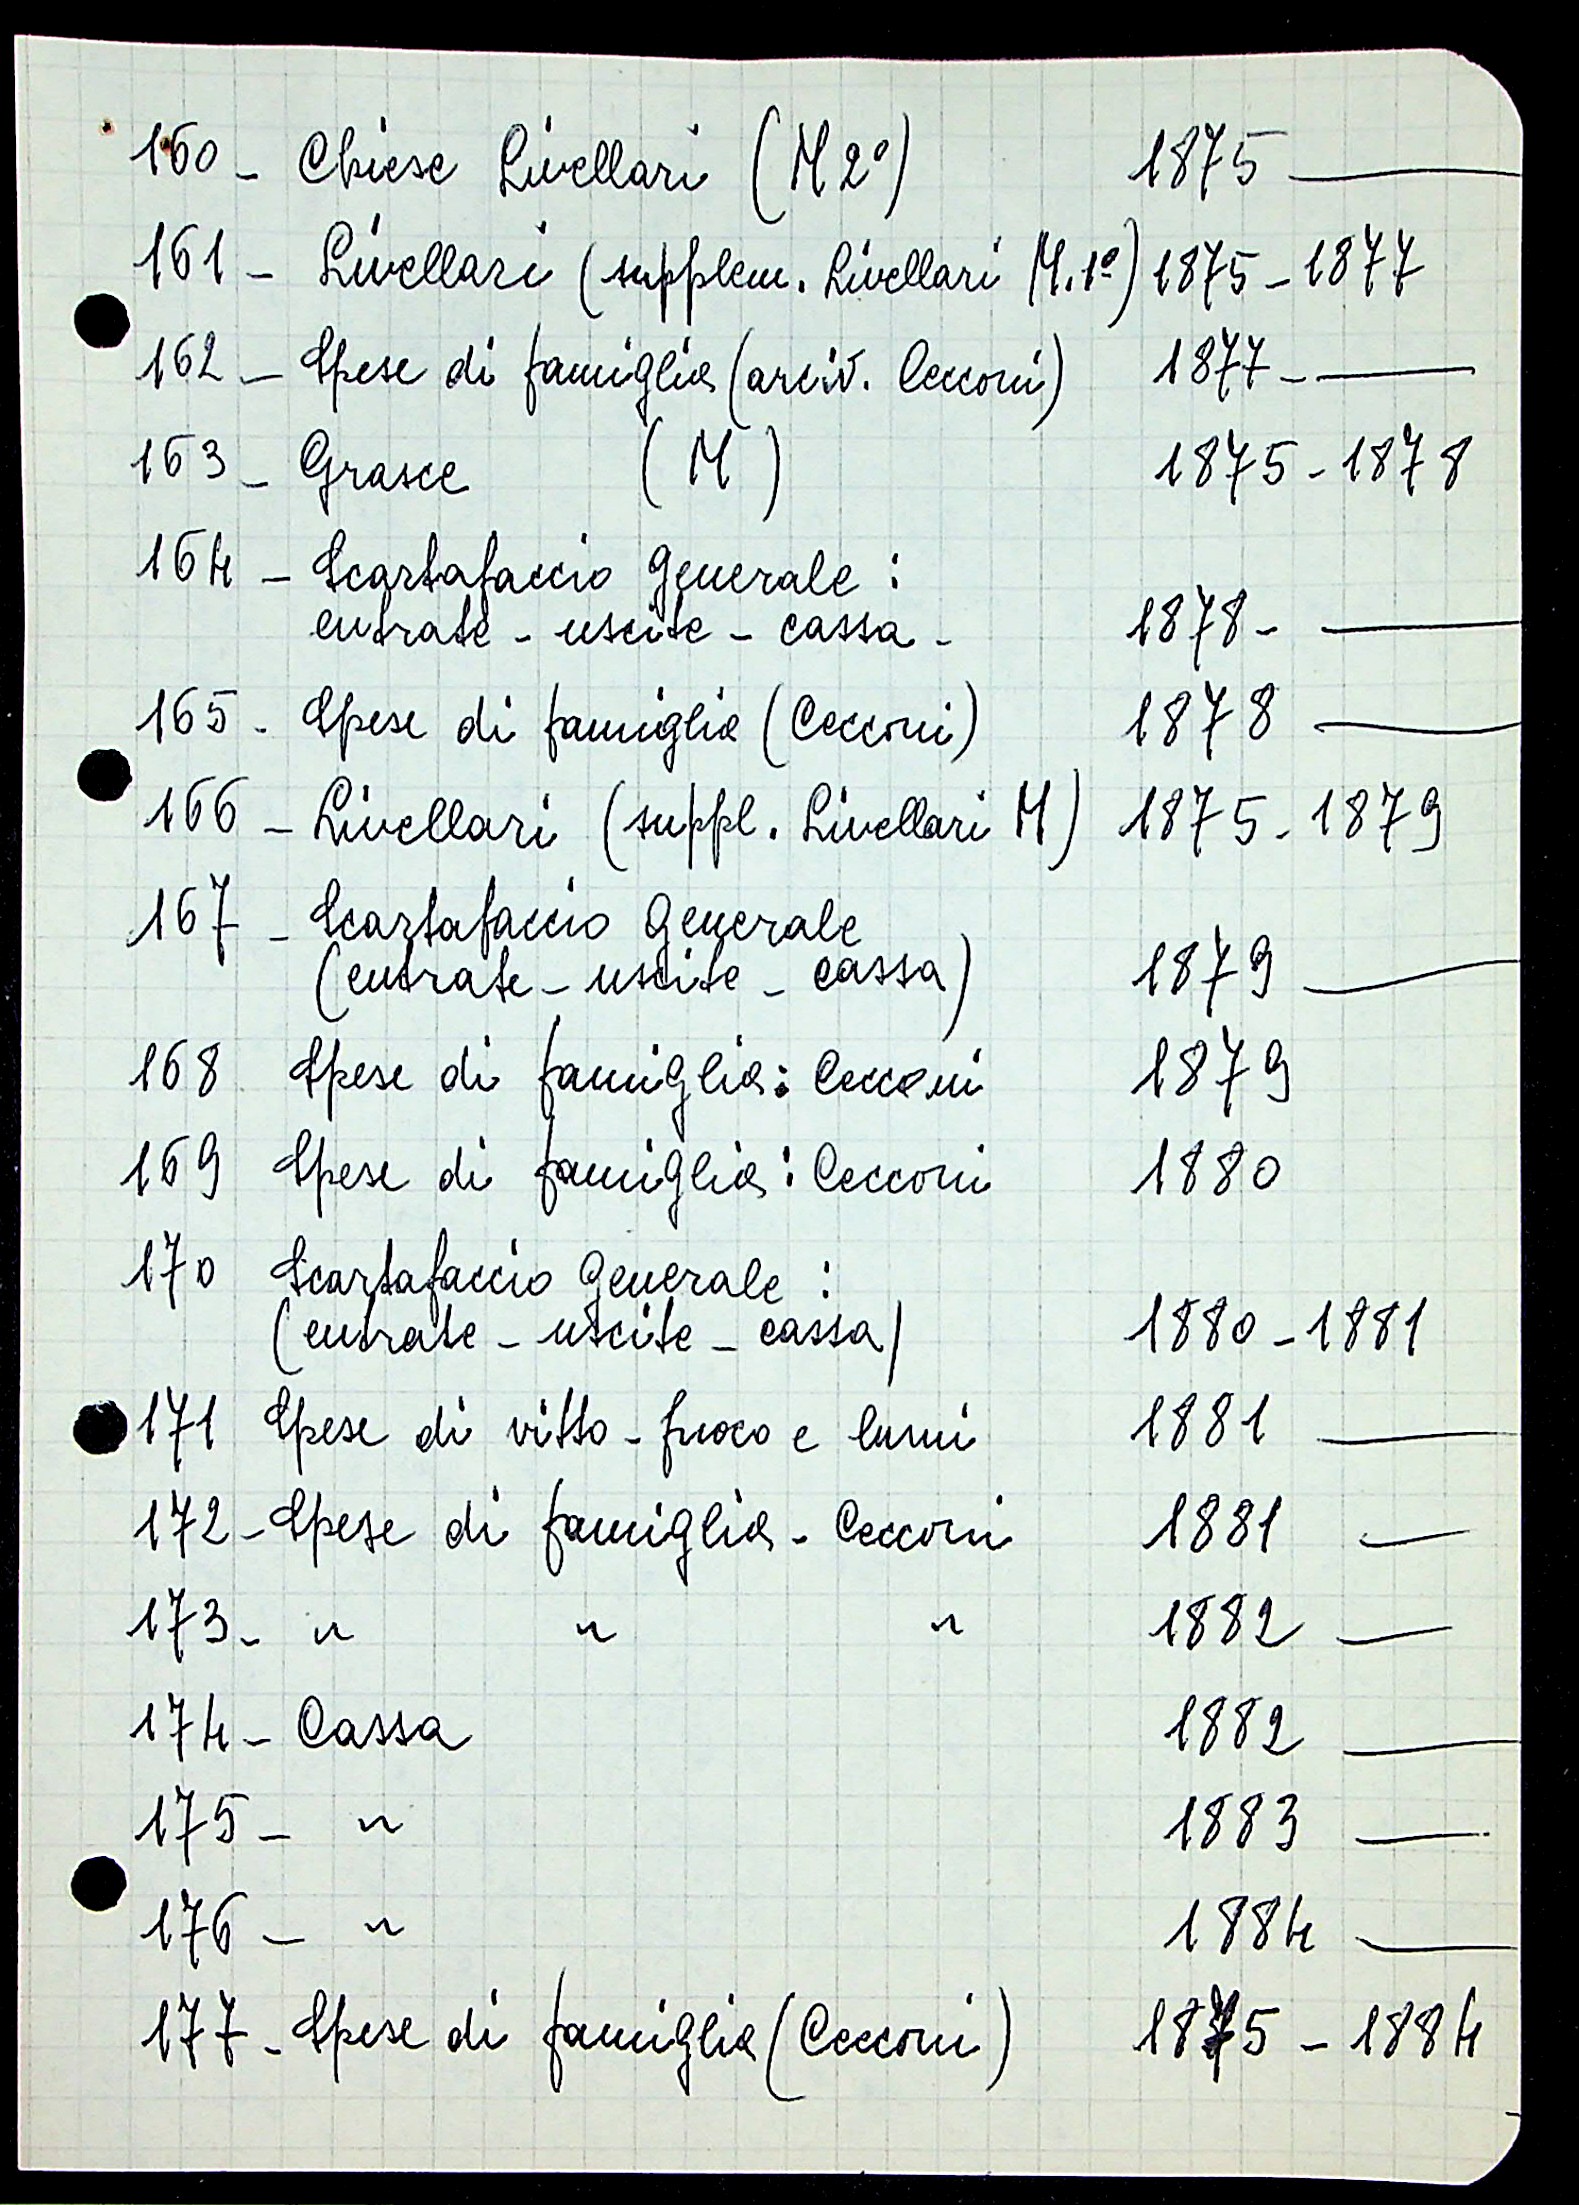 160 - Chiese Livellari (M 2º) 1875 —
161 - Livellari (supplem. Livellari M. 1º) 1875 - 1877
162 - Spese di famiglia (arciv. Cecconi) 1877 - —
163 - Grasce (M) 1875 - 1878
164 - Scartafaccio generale :
entrate - uscite - cassa - 1878 - —
165 - Spese di famiglia (Cecconi) 1878 —
166 - Livellari (suppl. Livellari M) 1875 - 1879
167 - Scartafaccio generale
(entrate - uscite - cassa) 1879 —
168 Spese di famiglia : Cecconi 1879
169 Spese di famiglia : Cecconi 1880
170 Scartafaccio generale :
(entrate - uscite - cassa) 1880 - 1881
171 Spese di vitto - fuoco e lumi 1881 —
172 - Spese di famiglia - Cecconi 1881 —
173 - " " " 1882 —
174 - Cassa 1882 —
175 - " 1883 —
176 - " 1884 —
177 - Spese di famiglia (Cecconi) 1875 - 1884